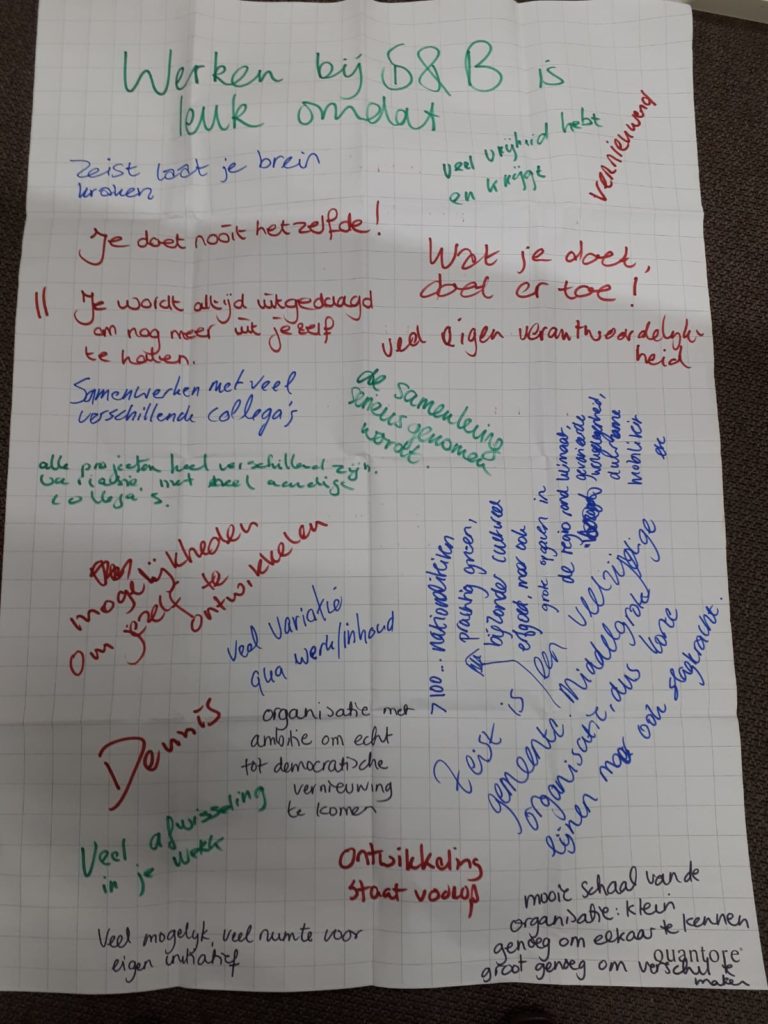 Werken bij S&B is
leuk omdat
Zeist laat je brein
kraken
veel vrijheid hebt
en krijgt
vernieuwend
Je doet nooit hetzelfde!
Wat je doet,
doet er toe!
" Je wordt altijd uitgedaagd
om nog meer uit jezelf
te halen.
veel eigen verantwoordelijk-
heid
Samenwerken met veel
verschillende collega's
de samenleving
serieus genomen
wordt.
alle projecten heel verschillend zijn.
met veel aardige
collega's.
mogelijkheden
om jezelf te
ontwikkelen
veel variatie
qua werk/inhoud
7100... nationaliteiten
prachtig groen,
bijzonder cultureel
erfgoed, maar ook
grote opgaven in
de regio rond klimaat,
duurzame
mobiliteit
etc
Zeist is een veelzijdige
gemeente. Middelgrote
organisatie, dus korte
lijnen maar ook slagkracht.
Dennis
organisatie met
ambitie om echt
tot democratische
vernieuwing
te komen
Veel afwisseling
in je werk
Ontwikkeling
staat voorop
mooie schaal van de
organisatie: klein
genoeg om elkaar te kennen
groot genoeg om verschil te
maken
quantore
Veel mogelijk, veel ruimte voor
eigen initiatief